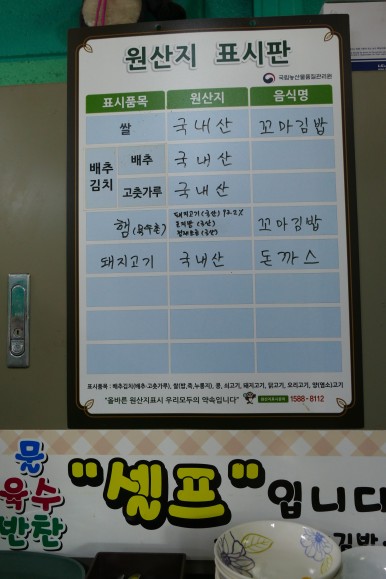 원산지 표시판
국립농산물품질관리원
표시품목 원산지 음식명
쌀 국내산 꼬마김밥
배추김치 배추 국내산
고춧가루 국내산
햄 돼지고기(국산) 92.2% 꼬마김밥
돼지고기 국내산 돈까스
표시품목 : 배추김치(배추·고춧가루), 쌀(밥,죽,누룽지), 콩, 쇠고기, 돼지고기, 닭고기, 오리고기, 양(염소)고기
"올바른 원산지표시 우리모두의 약속입니다" 1588-8112
물 육수 반찬 "셀프"입니다
김밥